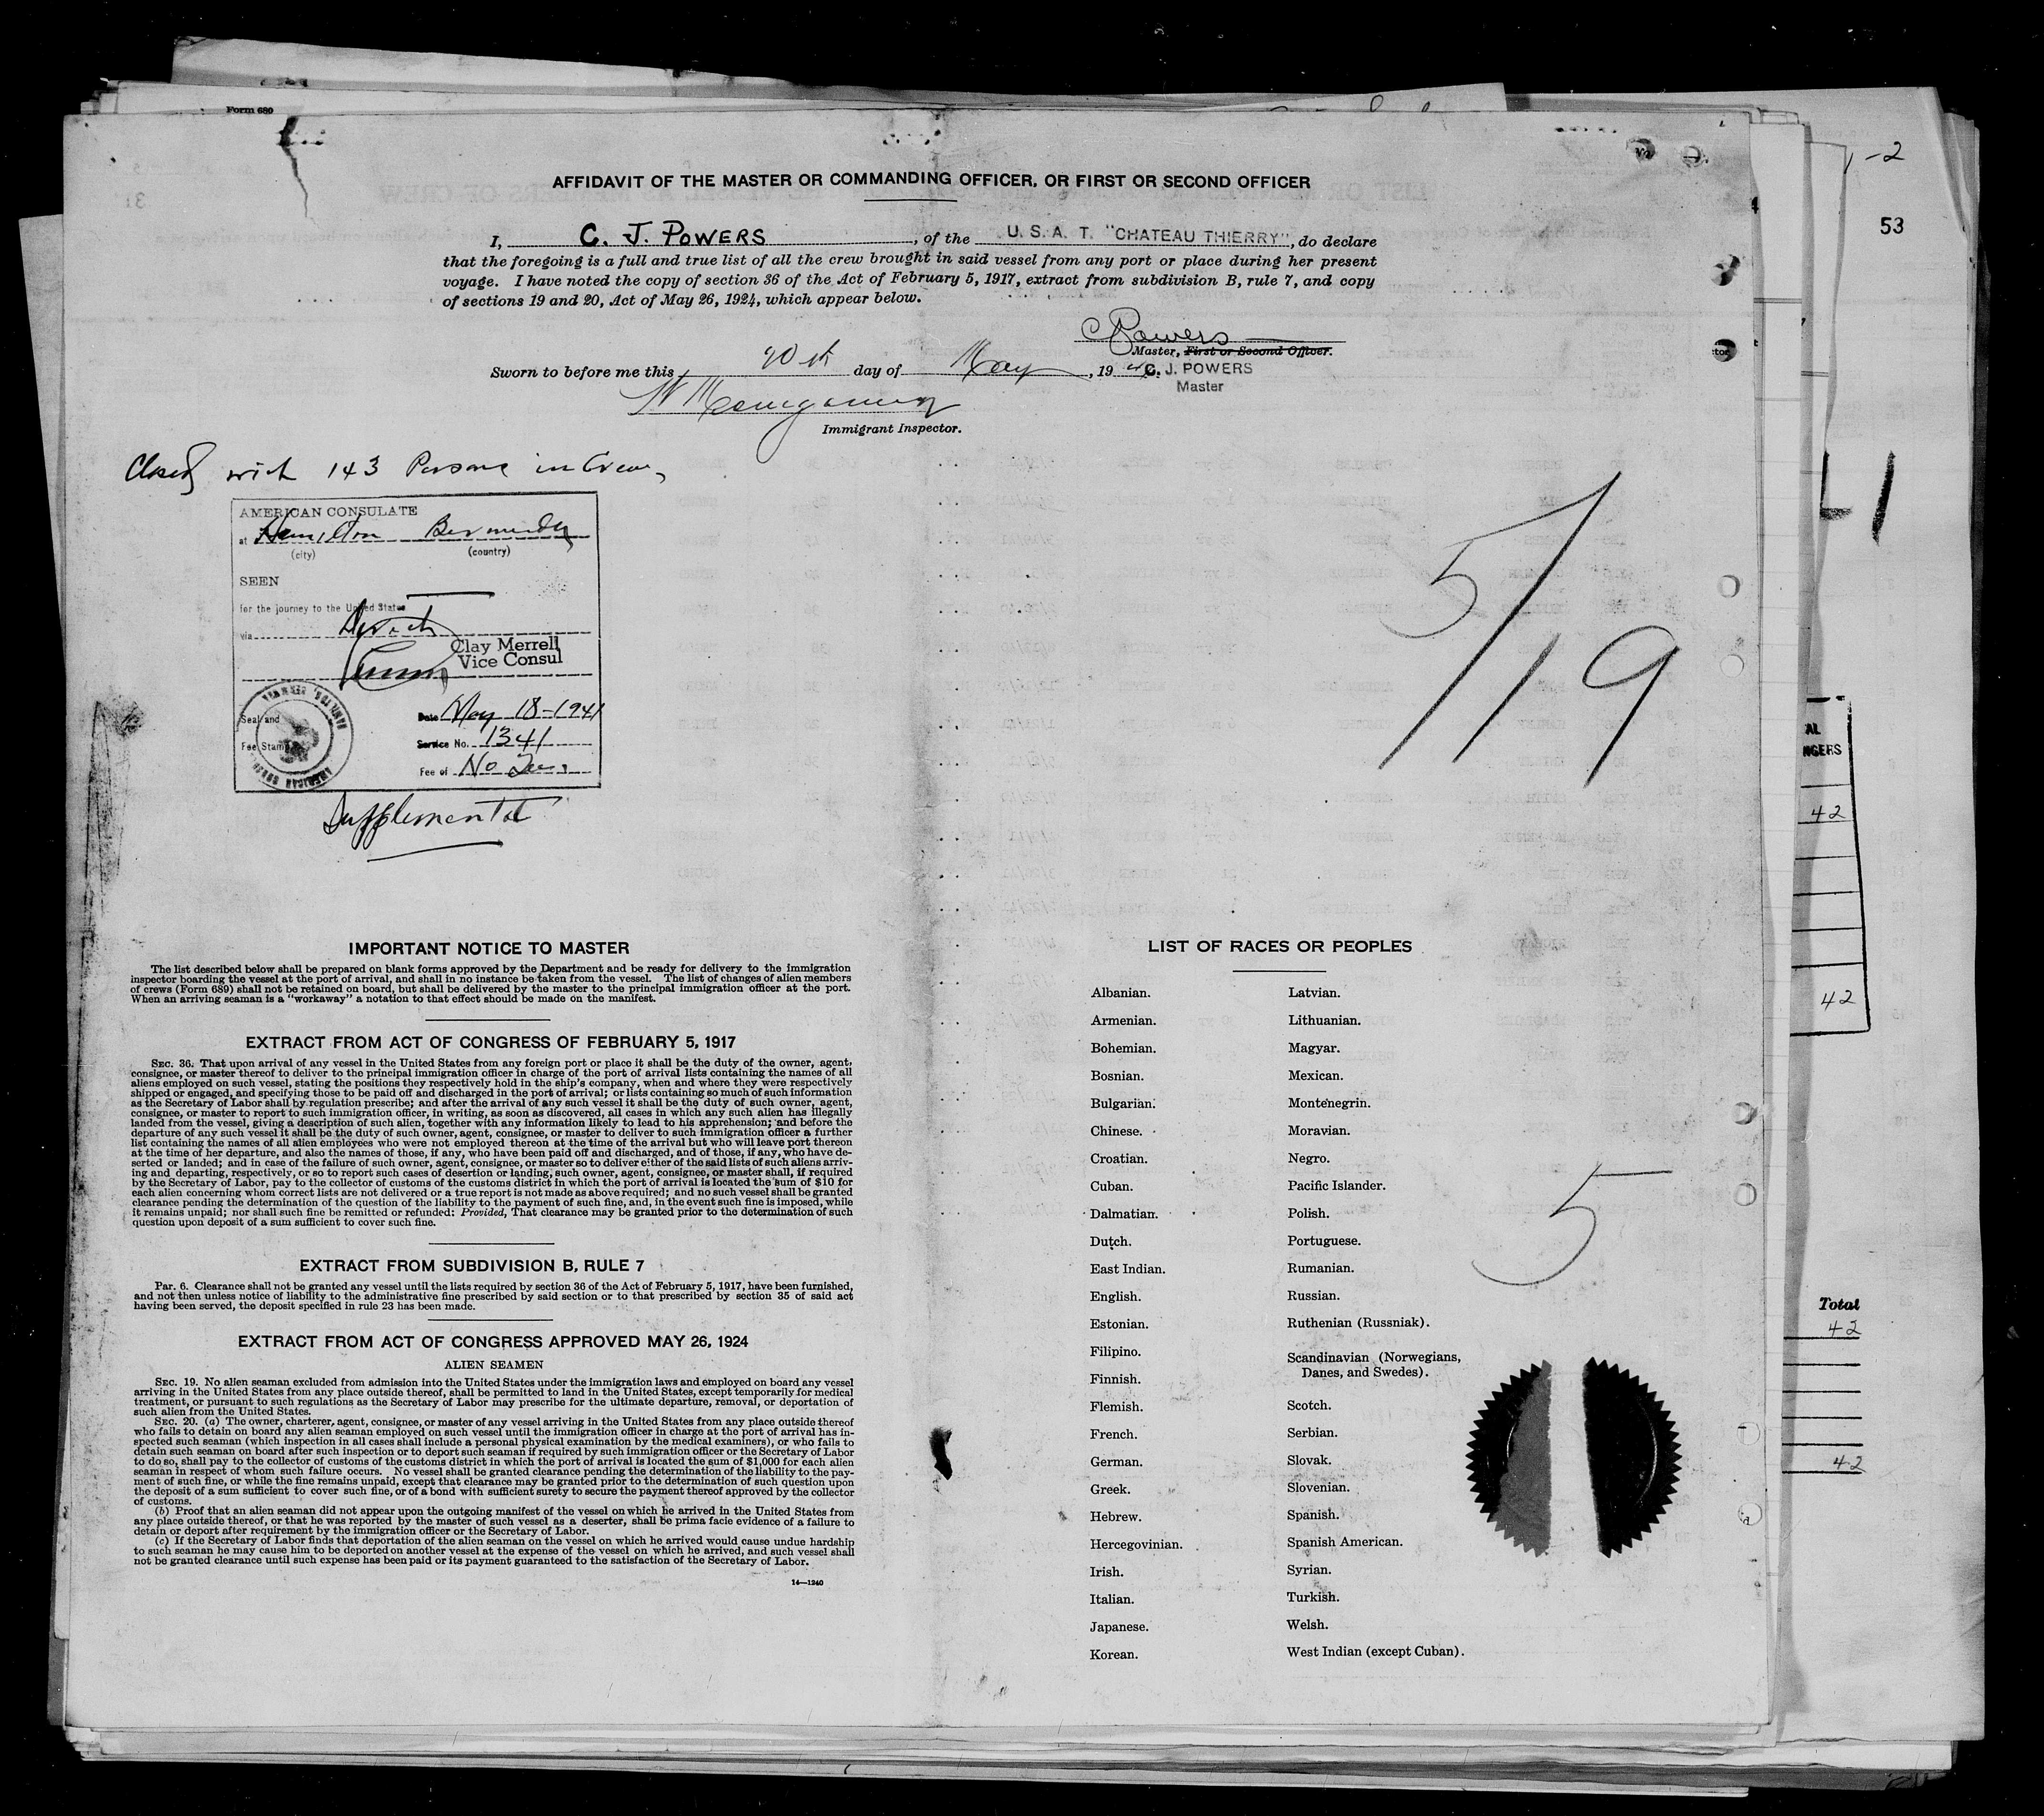 Form 680
AFFIDAVIT OF THE MASTER OR COMMANDING OFFICER, OR FIRST OR SECOND OFFICER
I, C. J. POWERS, of the U. S. A. T. "CHATEAU THIERRY", do declare
that the foregoing is a full and true list of all the crew brought in said vessel from any port or place during her present
voyage. I have noted the copy of section 36 of the Act of February 5, 1917, extract from subdivision B, rule 7, and copy
of sections 19 and 20, Act of May 26, 1924, which appear below.
C J Powers
Master, First or Second Officer.
Sworn to before me this 20th day of May, 19 4
C. J. POWERS
Master
Immigrant Inspector.
Closed with 143 Persons in Crew
AMERICAN CONSULATE
at Hamilton Bermuda
(city) (country)
SEEN
for the journey to the United States
via
Clay Merrell
Vice Consul
Seal and
Fee Stamp
Date May 18-1941
Service No. 1341
Fee of No Fee
Supplemental
5/19
IMPORTANT NOTICE TO MASTER
The list described below shall be prepared on blank forms approved by the Department and be ready for delivery to the immigration
inspector boarding the vessel at the port of arrival, and shall in no instance be taken from the vessel. The list of changes of alien members
of crews (Form 689) shall not be retained on board, but shall be delivered by the master to the principal immigration officer at the port.
When an arriving seaman is a "workaway" a notation to that effect should be made on the manifest.
EXTRACT FROM ACT OF CONGRESS OF FEBRUARY 5, 1917
SEC. 36. That upon arrival of any vessel in the United States from any foreign port or place it shall be the duty of the owner, agent,
consignee, or master thereof to deliver to the principal immigration officer in charge of the port of arrival lists containing the names of all
aliens employed on such vessel, stating the positions they respectively hold in the ship's company, when and where they were respectively
shipped or engaged, and specifying those to be paid off and discharged in the port of arrival; or lists containing so much of such information
as the Secretary of Labor shall by regulation prescribe; and after the arrival of any such vessel it shall be the duty of such owner, agent,
consignee, or master to report to such immigration officer, in writing, as soon as discovered, all cases in which any such alien has illegally
landed from the vessel, giving a description of such alien, together with any information likely to lead to his apprehension; and before the
departure of any such vessel it shall be the duty of such owner, agent, consignee, or master to deliver to such immigration officer a further
list containing the names of all alien employees who were not employed thereon at the time of the arrival but who will leave port thereon
at the time of her departure, and also the names of those, if any, who have been paid off and discharged, and of those, if any, who have de-
serted or landed; and in case of the failure of such owner, agent, consignee, or master so to deliver either of the said lists of such aliens arriv-
ing and departing, respectively, or so to report such cases of desertion or landing, such owner, agent, consignee, or master shall, if required
by the Secretary of Labor, pay to the collector of customs of the customs district in which the port of arrival is located the sum of $10 for
each alien concerning whom correct lists are not delivered or a true report is not made as above required; and no such vessel shall be granted
clearance pending the determination of the question of the liability to the payment of such fine, and, in the event such fine is imposed, while
it remains unpaid; nor shall such fine be remitted or refunded: Provided, That clearance may be granted prior to the determination of such
question upon deposit of a sum sufficient to cover such fine.
EXTRACT FROM SUBDIVISION B, RULE 7
Par. 6. Clearance shall not be granted any vessel until the lists required by section 36 of the Act of February 5, 1917, have been furnished,
and not then unless notice of liability to the administrative fine prescribed by said section or to that prescribed by section 35 of said act
having been served, the deposit specified in rule 23 has been made.
EXTRACT FROM ACT OF CONGRESS APPROVED MAY 26, 1924
ALIEN SEAMEN
SEC. 19. No alien seaman excluded from admission into the United States under the immigration laws and employed on board any vessel
arriving in the United States from any place outside thereof, shall be permitted to land in the United States, except temporarily for medical
treatment, or pursuant to such regulations as the Secretary of Labor may prescribe for the ultimate departure, removal, or deportation of
such alien from the United States.
SEC. 20. (a) The owner, charterer, agent, consignee, or master of any vessel arriving in the United States from any place outside thereof
who fails to detain on board any alien seaman employed on such vessel until the immigration officer in charge at the port of arrival has in-
spected such seaman (which inspection in all cases shall include a personal physical examination by the medical examiners), or who fails to
detain such seaman on board after such inspection or to deport such seaman if required by such immigration officer or the Secretary of Labor
to do so, shall pay to the collector of customs of the customs district in which the port of arrival is located the sum of $1,000 for each alien
seaman in respect of whom such failure occurs. No vessel shall be granted clearance pending the determination of the liability to the pay-
ment of such fine, or while the fine remains unpaid, except that clearance may be granted prior to the determination of such question upon
the deposit of a sum sufficient to cover such fine, or of a bond with sufficient surety to secure the payment thereof approved by the collector
of customs.
(b) Proof that an alien seaman did not appear upon the outgoing manifest of the vessel on which he arrived in the United States from
any place outside thereof, or that he was reported by the master of such vessel as a deserter, shall be prima facie evidence of a failure to
detain or deport after requirement by the immigration officer or the Secretary of Labor.
(c) If the Secretary of Labor finds that deportation of the alien seaman on the vessel on which he arrived would cause undue hardship
to such seaman he may cause him to be deported on another vessel at the expense of the vessel on which he arrived, and such vessel shall
not be granted clearance until such expense has been paid or its payment guaranteed to the satisfaction of the Secretary of Labor.
14—1240
LIST OF RACES OR PEOPLES
Albanian. Latvian.
Armenian. Lithuanian.
Bohemian. Magyar.
Bosnian. Mexican.
Bulgarian. Montenegrin.
Chinese. Moravian.
Croatian. Negro.
Cuban. Pacific Islander.
Dalmatian. Polish.
Dutch. Portuguese.
East Indian. Rumanian.
English. Russian.
Estonian. Ruthenian (Russniak).
Filipino. Scandinavian (Norwegians,
Danes, and Swedes).
Finnish.
Flemish. Scotch.
French. Serbian.
German. Slovak.
Greek. Slovenian.
Hebrew. Spanish.
Hercegovinian. Spanish American.
Irish. Syrian.
Italian. Turkish.
Japanese. Welsh.
Korean. West Indian (except Cuban).
5
-2
53
42
42
Total
42
42